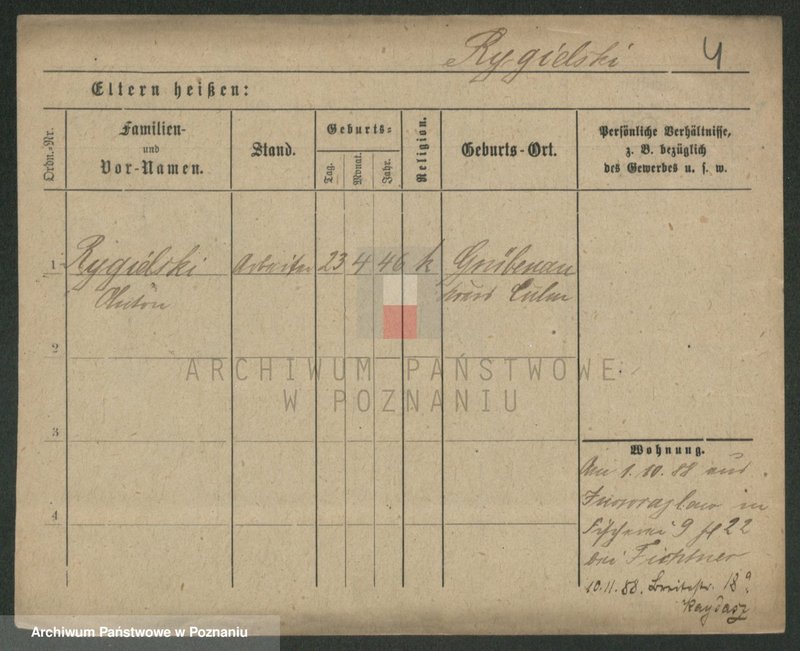 Rygielski 4
Eltern heißen:
Ordn.-Nr.
Familien-
und
Vor-Namen.
Stand.
Geburts-
Tag.
Monat.
Jahr.
Religion.
Geburts-Ort.
Persönliche Verhältnisse,
z. B. bezüglich
des Gewerbes u. s. w.
1 Rygielski Arbeiter 23 4 46 k Grübenau
Anton Kreis Culm
2
3
4
ARCHIWUM PAŃSTWOWE
W POZNANIU
Wohnung.
Am 1.10.88 aus
Inowrazlaw in
Fischerei 9 22
bei Fichtner
10.11.88. Breitestr. 18a
Kaydasz
Archiwum Państwowe w Poznaniu